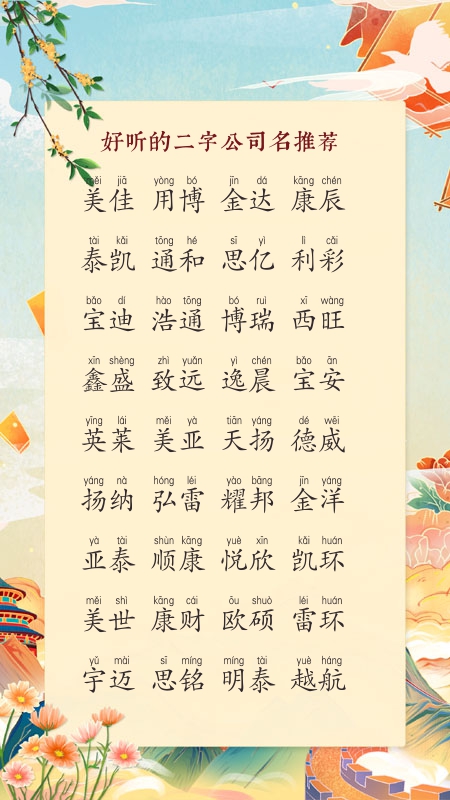 好听的二字公司名推荐
měi jiā yòng bó jīn dá kāng chén
美佳 用博 金达 康辰
tài kǎi tōng hé sī yì lì cǎi
泰凯 通和 思亿 利彩
bǎo dí hào tōng bó ruì xī wàng
宝迪 浩通 博瑞 西旺
xīn shèng zhì yuǎn yì chén bǎo ān
鑫盛 致远 逸晨 宝安
yīng lái měi yà tiān yáng dé wēi
英莱 美亚 天扬 德威
yáng nà hóng léi yào bāng jīn yáng
扬纳 弘雷 耀邦 金洋
yà tài shùn kāng yuè xīn kǎi huán
亚泰 顺康 悦欣 凯环
měi shì kāng cái ōu shuò léi huán
美世 康财 欧硕 雷环
yǔ mài sī míng míng tài yuè háng
宇迈 思铭 明泰 越航